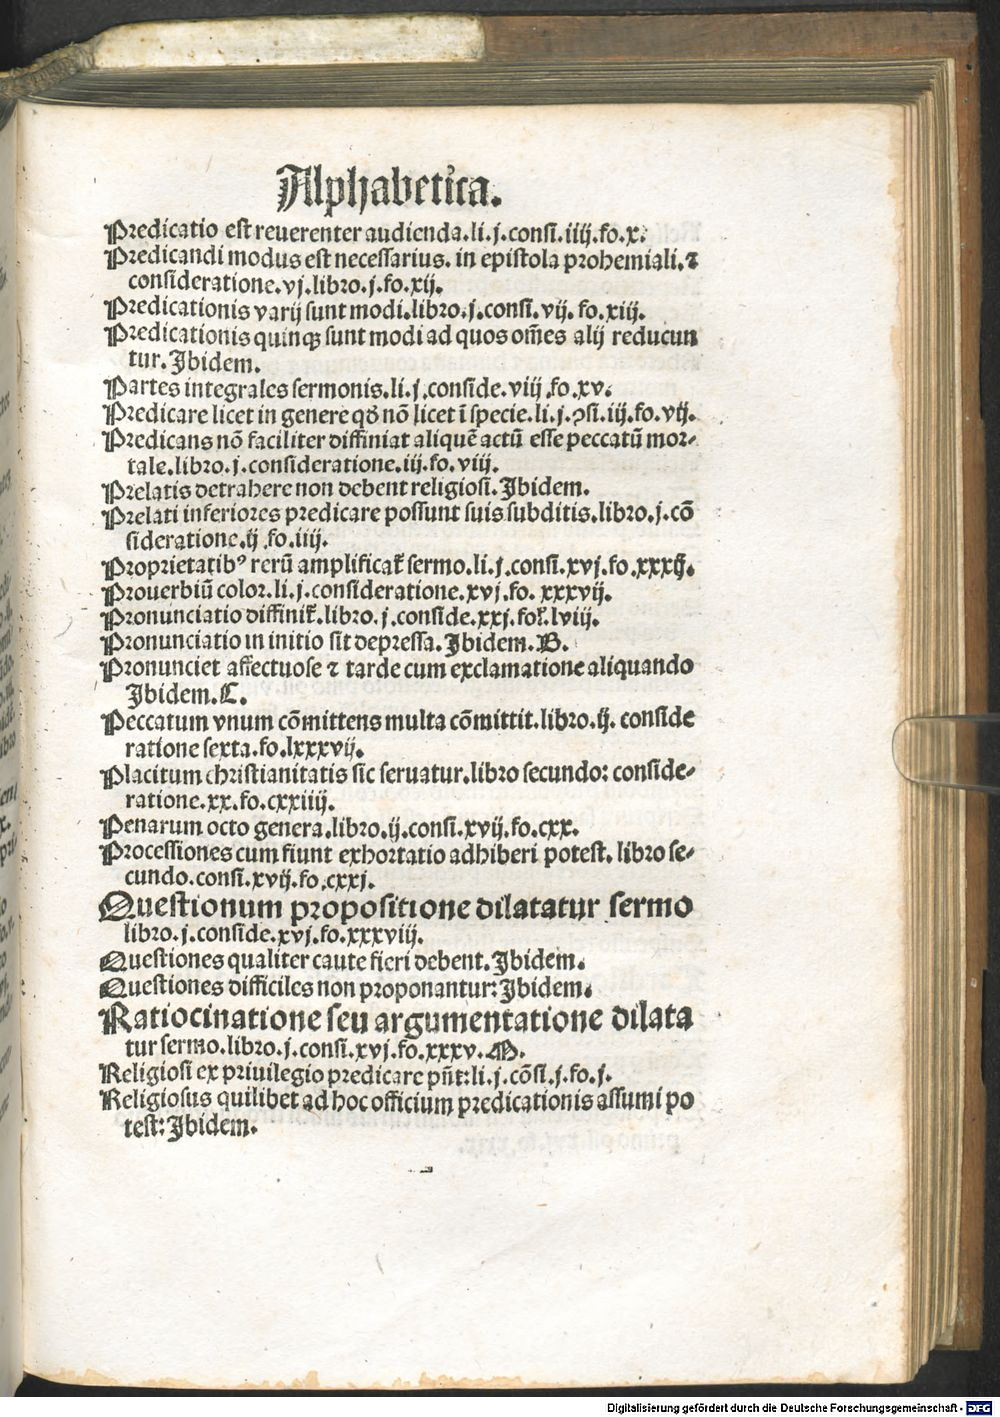 Alphabetica.
Predicatio est reuerenter audienda.li.j.consi.iiij.fo.x.
Predicandi modus est necessarius. in epistola prohemiali.⁊
consideratione.vj.libro.j.fo.xij.
Predicationis varij sunt modi.libro.j.consi.vij.fo.xiij.
Predicationis quinqꝫ sunt modi ad quos om̃es alij reducun
tur. Ibidem.
Partes integrales sermonis.li.j.conside.viij.fo.xv.
Predicare licet in genere qđ nõ licet ĩ specie.li.j.ꝯsi.iij.fo.vij.
Predicans nõ faciliter diffiniat aliquẽ actũ esse peccatũ mor-
tale.libro.j.consideratione.iij.fo.viij.
Prelatis detrahere non debent religiosi. Ibidem.
Prelati inferiores predicare possunt suis subditis.libro.j.cõ
sideratione.ij.fo.iiij.
Proprietatibꝰ rerũ amplificat᷑ sermo.li.j.consi.xvj.fo.xxxij.
Prouerbiũ color.li.j.consideratione.xvj.fo. xxxvij.
Pronunciatio diffinit᷑.libro.j.conside.xxj.fol̃.lviij.
Pronunciatio in initio sit depressa. Ibidem.B.
Pronunciet affectuose ⁊ tarde cum exclamatione aliquando
Ibidem.C.
Peccatum vnum cõmittens multa cõmittit.libro.ij. conside
ratione sexta.fo.lxxxvij.
Placitum christianitatis sic seruatur.libro secundo: conside-
ratione.xx.fo.cxxiiij.
Penarum octo genera.libro.ij.consi.xvij.fo.cxx.
Processiones cum fiunt exhortatio adhiberi potest. libro se-
cundo.consi.xvij.fo.cxxj.
Questionum propositione dilatatur sermo
libro.j.conside.xvj.fo.xxxviij.
Questiones qualiter caute fieri debent. Ibidem.
Questiones difficiles non proponantur: Ibidem.
Ratiocinatione seu argumentatione dilata
tur sermo.libro.j.consi.xvj.fo.xxxv.M.
Religiosi ex priuilegio predicare pñt:li.j.cõsi.j.fo.j.
Religiosus quilibet ad hoc officium predicationis assumi po
test: Ibidem.
Digitalisierung gefördert durch die Deutsche Forschungsgemeinschaft - DFG